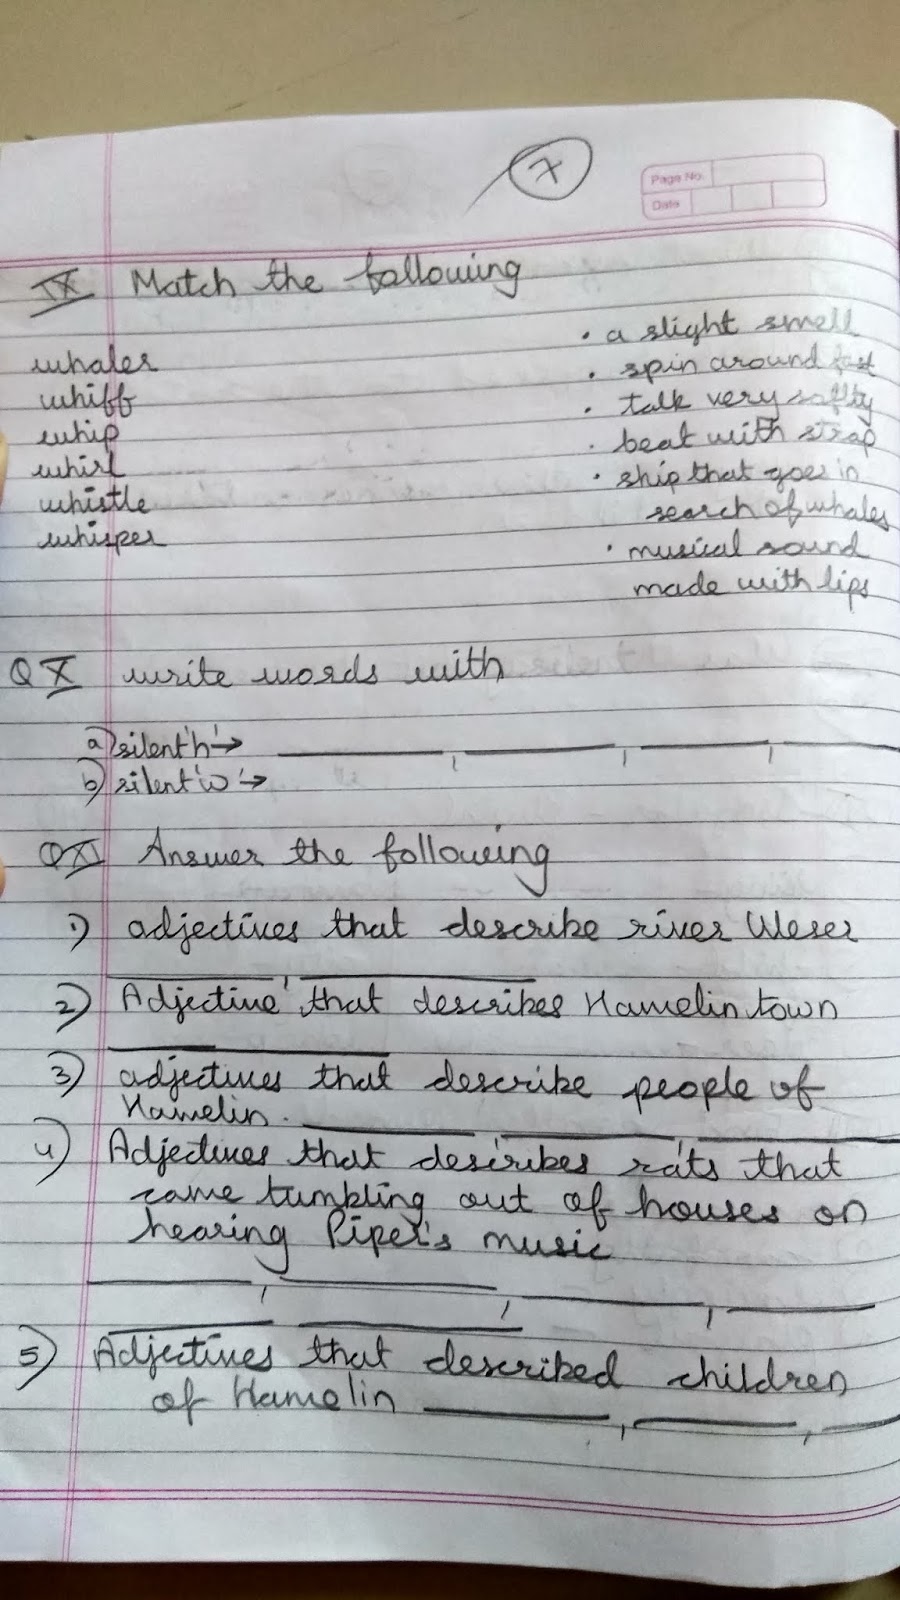 7
Page No.
Date
IX Match the following
whaler
whiff
whip
whirl
whistle
whisper
• a slight smell
• spin around fast
• talk very saftly
• beat with strap
• ship that goes in
search of whales
• musical sound
made with lips
Q X write words with
a) silent 'h' → , , ,
b) silent 'w' →
Q XI Answer the following
1) adjectives that describe river Weser
,
2) Adjective that describes Hamelin town
3) adjectives that describe people of
Hamelin. , ,
4) Adjectives that describes rats that
came tumbling out of houses on
hearing Piper's music
, , ,
5) Adjectives that described children
of Hamelin , ,